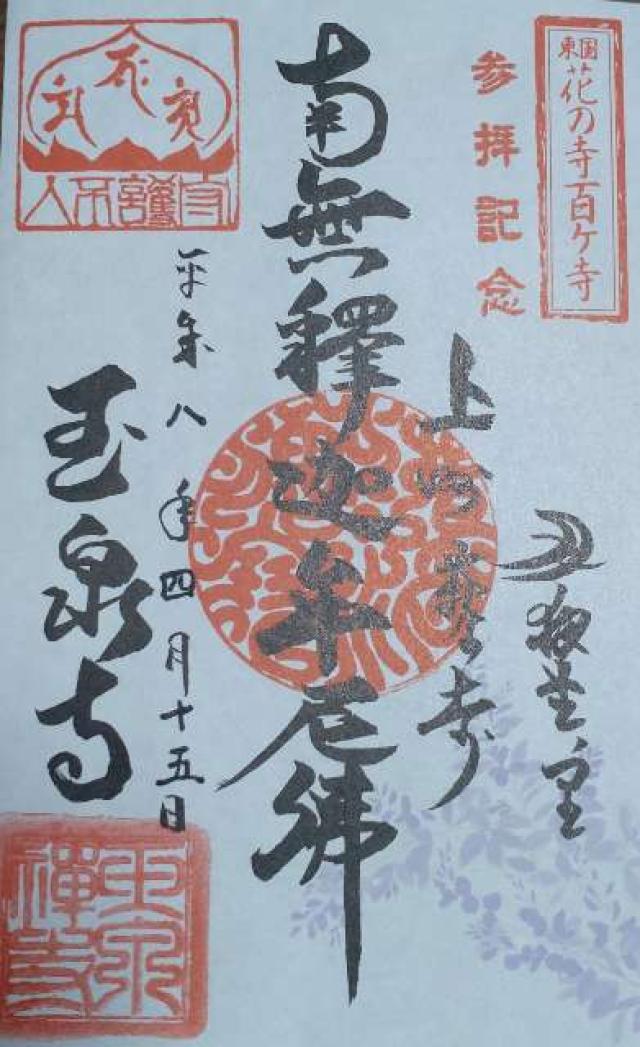 東国花の寺百ヶ寺
参拝記念
南無釋迦牟尼佛
平成八年四月十五日
玉泉寺
守護不入
玉泉
禪寺